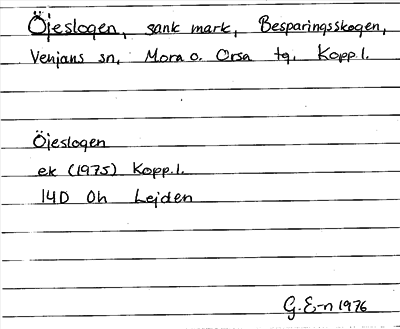 Öjeslogen, sank mark, Besparingsskogen,
Venjans sn, Mora o. Orsa tg, Kopp.l.
Öjeslogen
ek (1975) Kopp.l.
14D 0h Lejden
G.E-n 1976